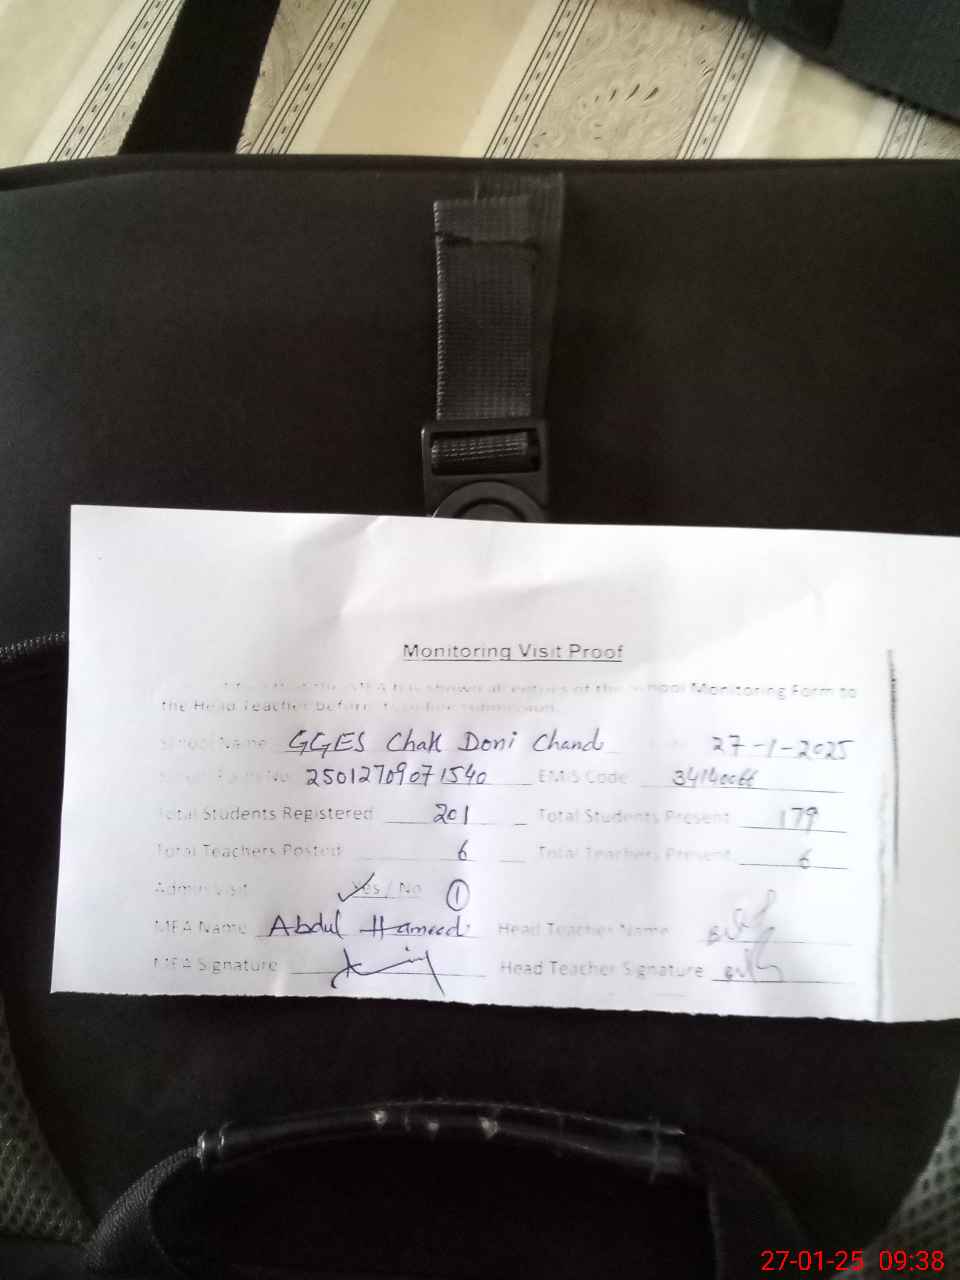 Monitoring Visit Proof
that the MEA has shown all entries of the School Monitoring Form to
the Head Teacher before
School Name GGES Chak Doni Chand 27-1-2025
25012709071540 EMIS Code
Total Students Registered 201 Total Students Present 179
Total Teachers Posted 6 Total Teachers Present 6
Admin Visit Yes / No 1
MEA Name Abdul Hameed Head Teacher Name
MEA Signature Head Teacher Signature
27-01-25 09:38